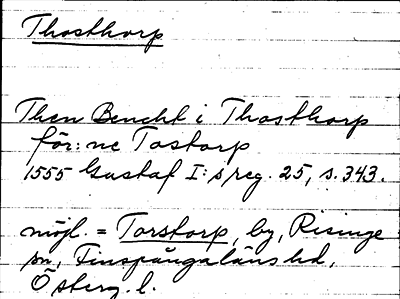 Thosthorp
Then Bencht i Thosthorp
för: ne Tostorp
1555 Gustaf I: s reg. 25, s. 343.
möjl. = Torstorp, by, Risinge
sn, Finspångaläns hd,
Österg. l.